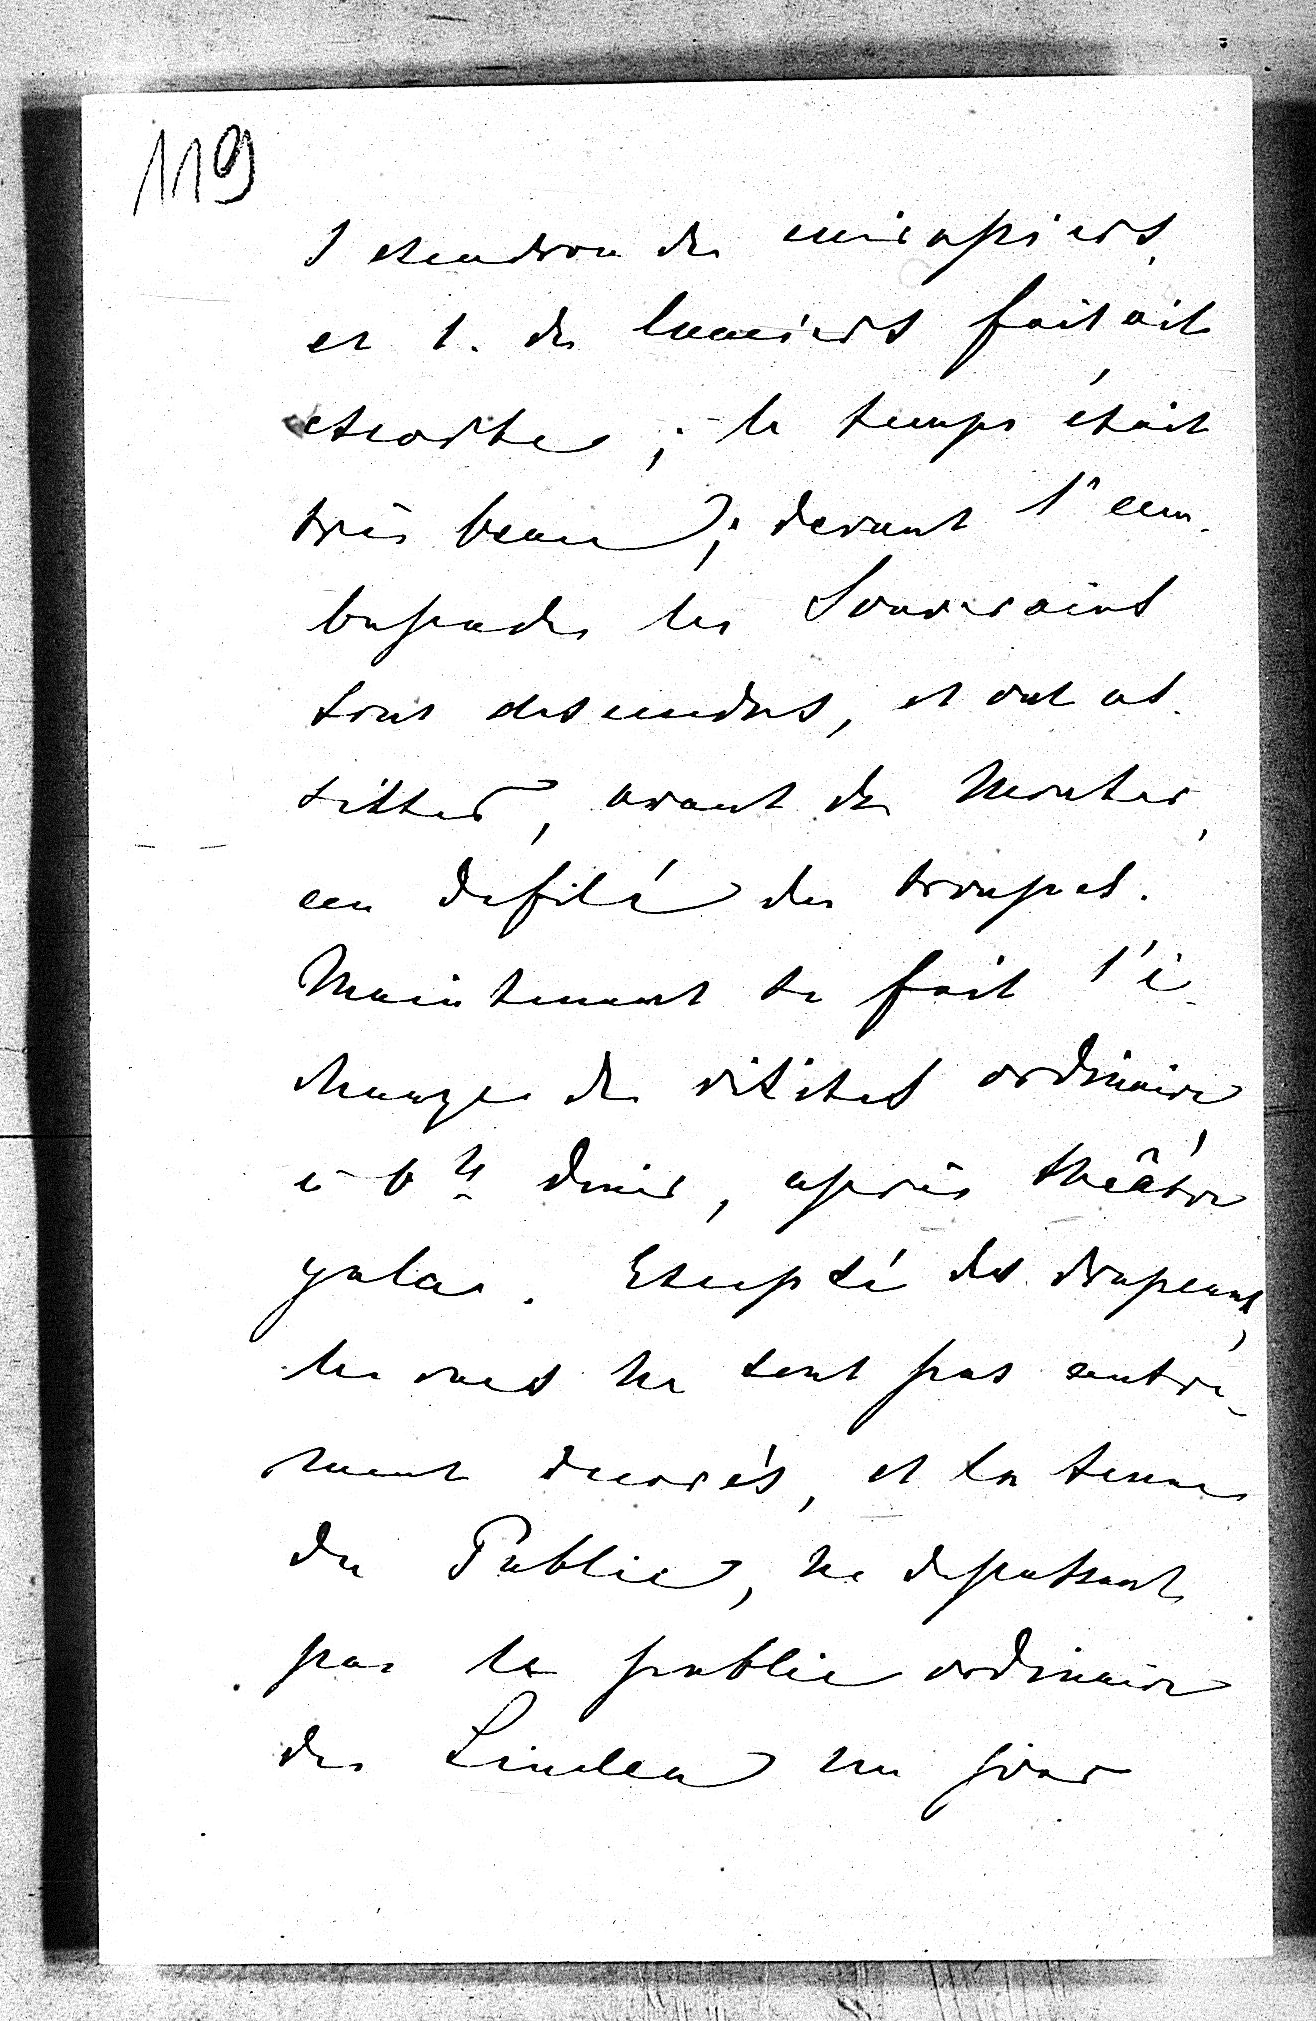 119
1 escadron de cuirassiers,
et 1. de lanciers faisait
escorte ; le temps était
très beau ; devant l'em-
bassade les Souverains
sont descendus, et ont as-
sister, avant de monter,
au défilé des troupes.
Maintenant se fait l'é-
change de visites ordinaire
à 6 h dîner, après théâtre
gala. Excepté des drapeaux,
les rues ne sont pas autre-
ment decorés, et la tenue
du Public, ne depassant
pas le public ordinaire
des Linden un jour